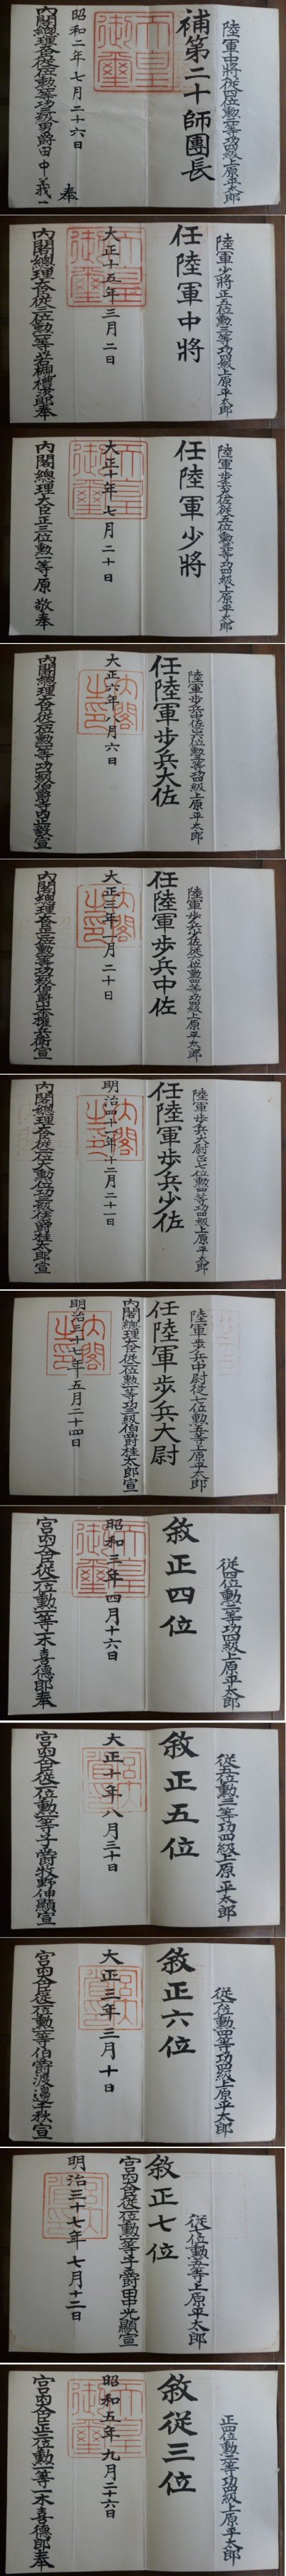 陸軍中將從四位勲二等功四級上原平太郎
補第二十師團長
昭和二年七月二十六日
內閣總理大臣從二位勲一等功三級男爵田中義一 奉
陸軍少將正五位勲三等功四級上原平太郎
任陸軍中將
大正十五年三月二日
內閣總理大臣從二位勲一等若槻禮次郎奉
陸軍步兵大佐從五位勲三等功四級上原平太郎
任陸軍少將
大正十年七月二十日
內閣總理大臣正三位勲一等原敬奉
陸軍步兵中佐正六位勲三等功四級上原平太郎
任陸軍步兵大佐
大正六年八月六日
內閣總理大臣從二位勲一等功一級伯爵寺內正毅宣
陸軍步兵少佐從六位勲四等功四級上原平太郎
任陸軍步兵中佐
大正三年一月二十日
內閣總理大臣
伯爵山本權兵衞宣
陸軍步兵大尉正七位勲四等功四級上原平太郎
任陸軍步兵少佐
明治四十一年十二月二十一日
內閣總理大臣從二位大勲位功三級侯爵桂太郎宣
陸軍步兵中尉從七位勲五等上原平太郎
任陸軍步兵大尉
內閣總理大臣從二位勲一等功三級伯爵桂太郎宣
明治三十七年五月二十四日
從四位勲二等功四級上原平太郎
敘正四位
昭和三年四月十六日
宮內大臣從二位勲一等一木喜德郎奉
從五位勲三等功四級上原平太郎
敘正五位
大正十年八月三十日
宮內大臣從二位勲一等子爵牧野伸顯宣
從六位勲四等功四級上原平太郎
敘正六位
大正三年三月十日
宮內大臣從二位勲一等伯爵渡邊千秋宣
從七位勲五等上原平太郎
敘正七位
宮內大臣從二位勲一等子爵田中光顯宣
明治三十七年七月十二日
正四位勲二等功四級上原平太郎
敘從三位
昭和五年九月二十六日
宮內大臣正三位勲一等一木喜德郎奉